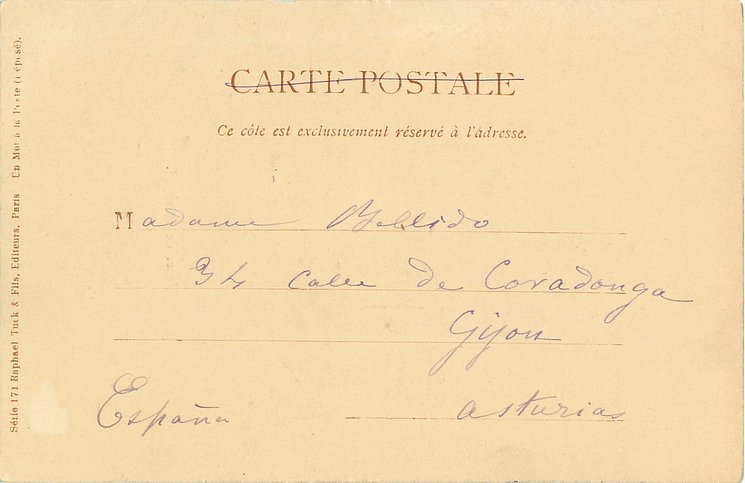 CARTE POSTALE
Ce côté est exclusivement réservé à l'adresse.
Madame Bellido
34 Calle de Covadonga
Gijon
España
asturias
Série 171 Raphael Tuck & Fils, Editeurs, Paris Un Mot à la Poste (déposé).